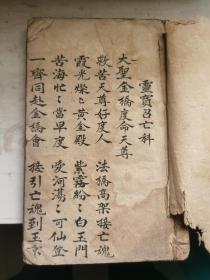 靈寶召亡科
大聖金橋度命天尊
救苦天尊好度人　法橋高架接亡魂
霞光燦〻黃金殿　紫霧紛〻白玉門
苦海忙〻當早度　愛河蕩〻可仙登
一齊同赴金橋會　接引亡魂到玉京